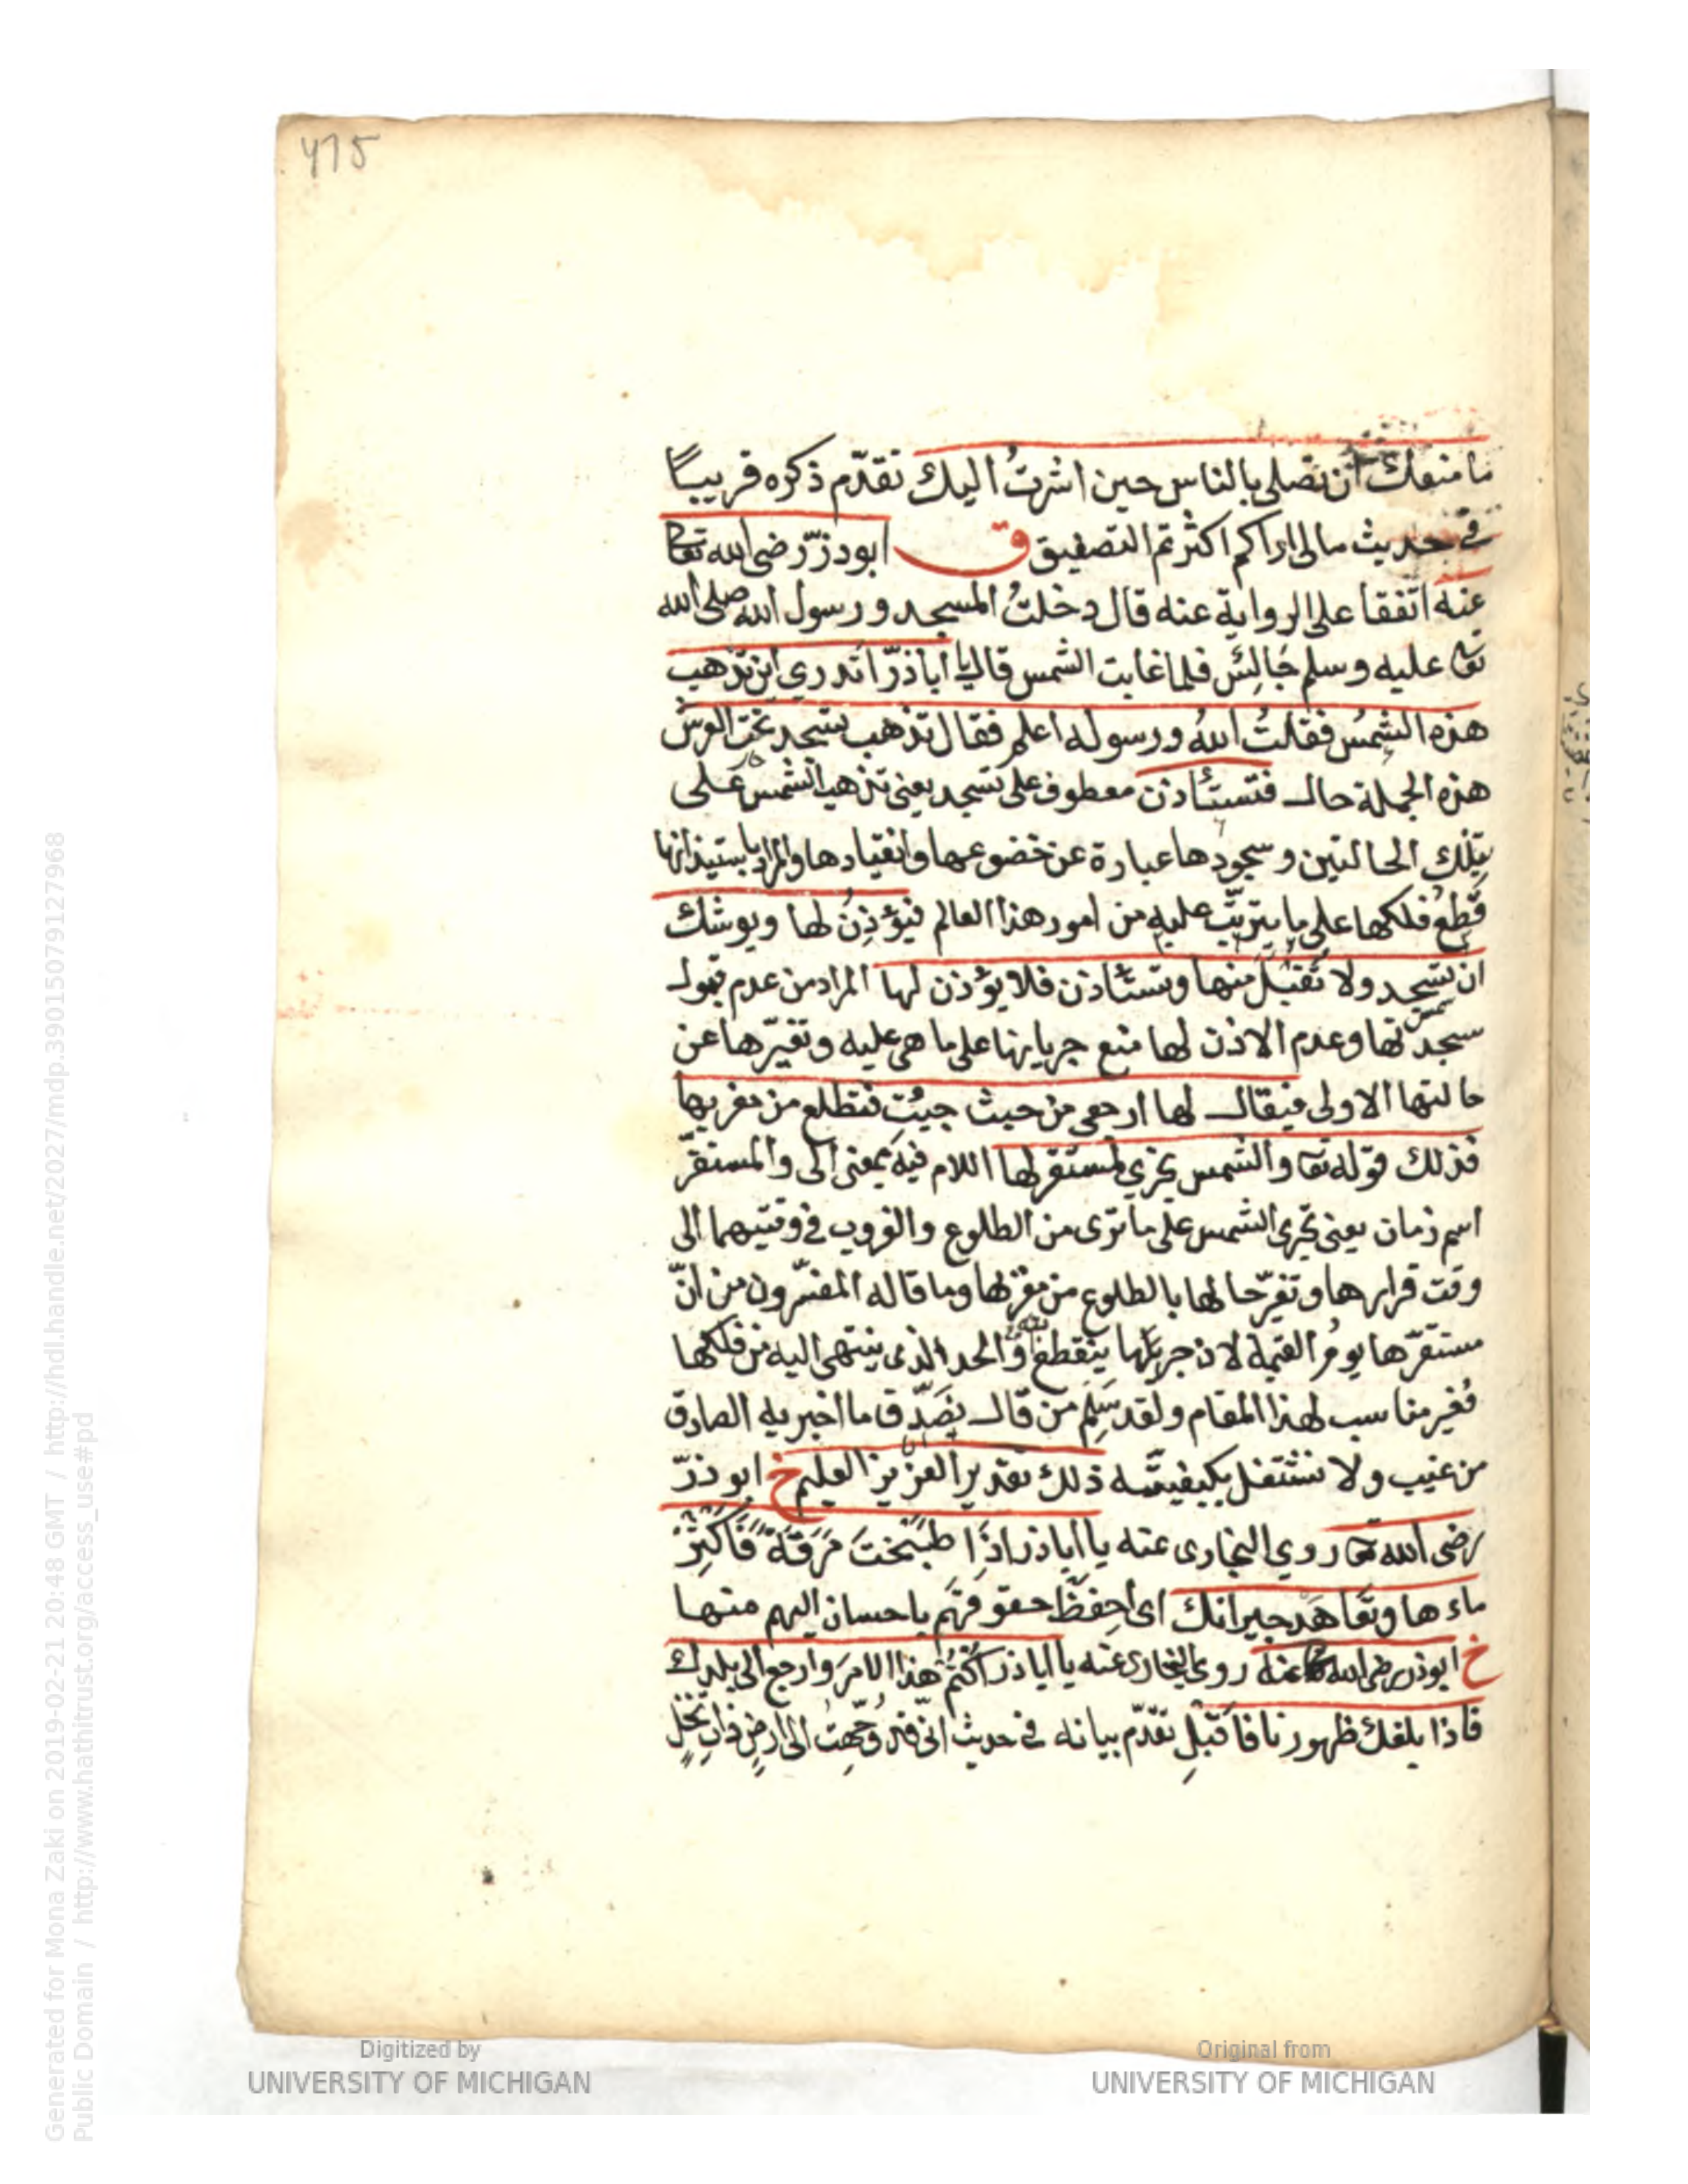 475
ما منعك ان تصلى بالناس حين اشرتُ اليك تقدّم ذكره قريبًا
فى حديث مالى اراكم اكثرتم التصفيق ق ابوذرّ رضى الله تعا
عنه اتفقا على الرواية عنه قال دخلتُ المسجد ورسول الله صلى الله
تع عليه وسلم جَالِسٌ فلما غابت الشمس قال يا اباذرّ اتدري اين تذهب
هذه الشمسُ فقلتُ اللهُ ورسوله اعلم فقال تذهب تسجد تحت العرش
هذه الجملة حال فتستأذن معطوف على تسجد يعنى تذهب الشمس على
تِلك الحالتين وسجودها عبارة عن خضوعها وانقيادها والمراد باستيذانها
قطعُ فلكها على ما يترتّب عليه من امور هذا العالم فيُؤذِنُ لها ويوشك
ان تسجد ولا تُقبَلَ منها وتستأذن فلا يؤذن لها المراد من عدم قبول
سجدتها وعدم الاذن لها منع جريانها على ما هى عليه وتغيّرها عن
حالتها الاولى فيقال لها ارجعى من حيث جيئتِ فتطلع من مغربها
فذلك قوله تعا والشمس تجري لمستقر لها اللام فيه بمعنى الى والمستقرّ
اسم زمان يعنى تجرى الشمس على ما ترى من الطلوع والغروب فى وقتيهما الى
وقت قرارها وتغيّر حالها بالطلوع من مغربها وما قاله المفسّرون من انّ
مستقرّها يومُ القيمة لان جريها ينقطع فيه او الحد الذى ينتهى اليه من فلكها
فغير مناسب لهذا المقام ولقد سَلِمَ من قال نصَدّق ما اخبر به الصادق
من غيب ولا نشتغل بكيفيتّه ذلك تقدير العزيز العليم خ ابو ذرّ
رضى الله تعا روي البخارى عنه يا اباذر اذَا طبَخْتَ مَرَقَةً فَأكثِرْ
ماءها وتعَاهَد جيرانك اى احفظْ حقوقهم باحسان اليهم منها
خ ابوذر رضى الله تعا عنه روى البخارى عنه يا اباذر اكتُمْ هذا الامرَ وارجع الى بلدك
فاذا بلغك ظهورنا فاَقبِلْ تقدّم بيانه فى حديث انّى قد وُجّهتُ الى ارضٍ ذاتِ نخلٍ
Digitized by
UNIVERSITY OF MICHIGAN
Original from
UNIVERSITY OF MICHIGAN
Generated for Mona Zaki on 2019-02-21 20:48 GMT / http://hdl.handle.net/2027/mdp.39015079127968
Public Domain / http://www.hathitrust.org/access_use#pd